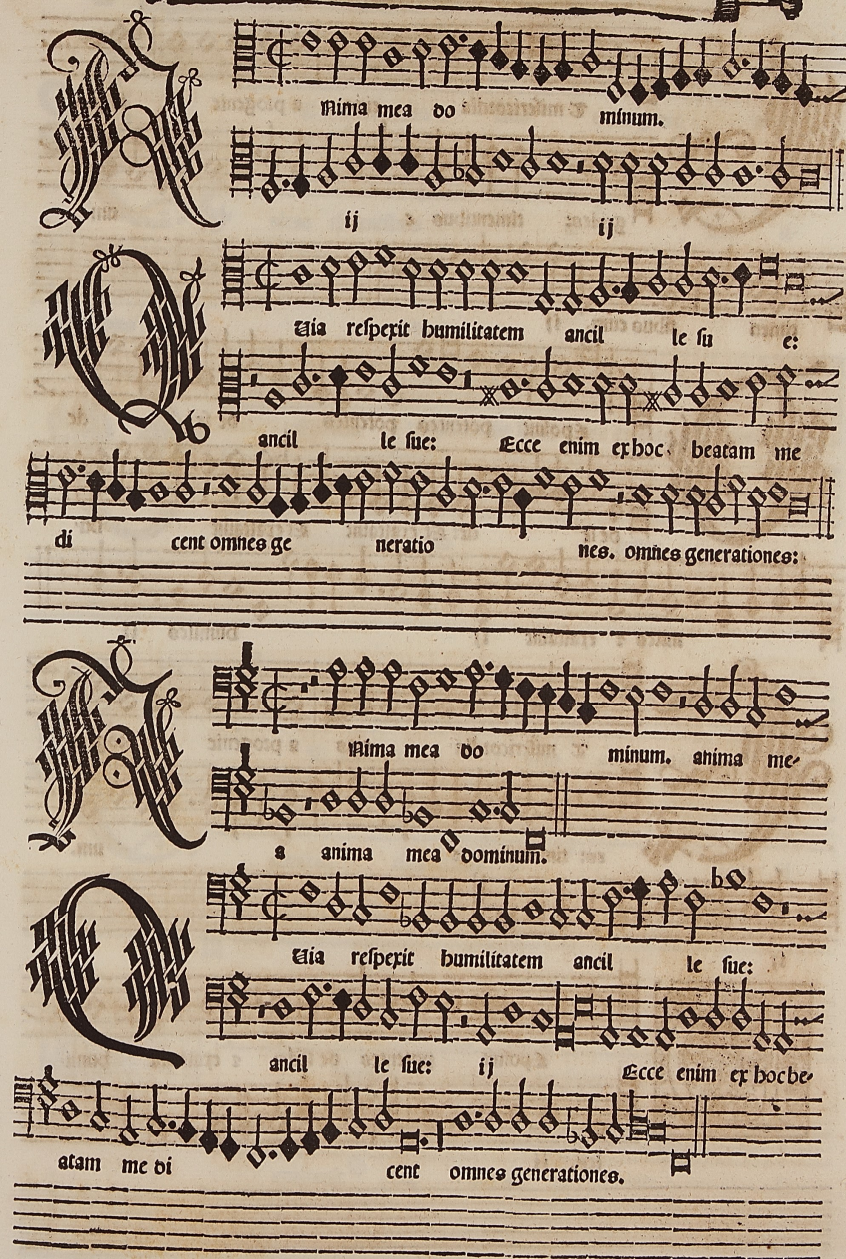 ANima mea do minum.
ij ij
QUia respexit humilitatem ancil le su e:
ancil le sue: Ecce enim ex hoc beatam me
di cent omnes ge neratio nes. omnes generationes:
ANima mea do minum. anima me-
a anima mea dominum.
QUia respexit humilitatem ancil le sue:
ancil le sue: ij Ecce enim ex hoc be-
atam me di cent omnes generationes.